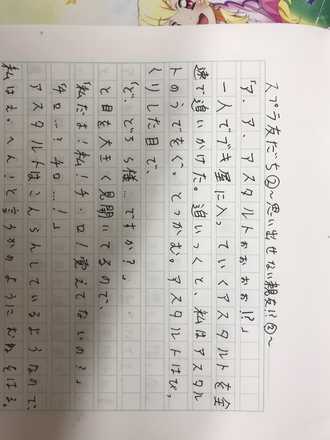 スプラ友だち②〜思い出せない親友!?②〜
「ア、ア、アスタルトおぉぉぉ!?」
一人でブキ屋に入っていくアスタルトを全
速で追いかけた。追いつくと、私はアスタル
トのうでをぐっとつかむ。アスタルトはびっ
くりした目で、
「ど、どちら様…ですか?」
と目を大きく見開いてるので、
「私だよ!私!チ・ロ!覚えてないの?」
「チロ…?チロ…!」
アスタルトはこんらんしているようなので、
私はえっへん!と言うかのようにむねをはる。